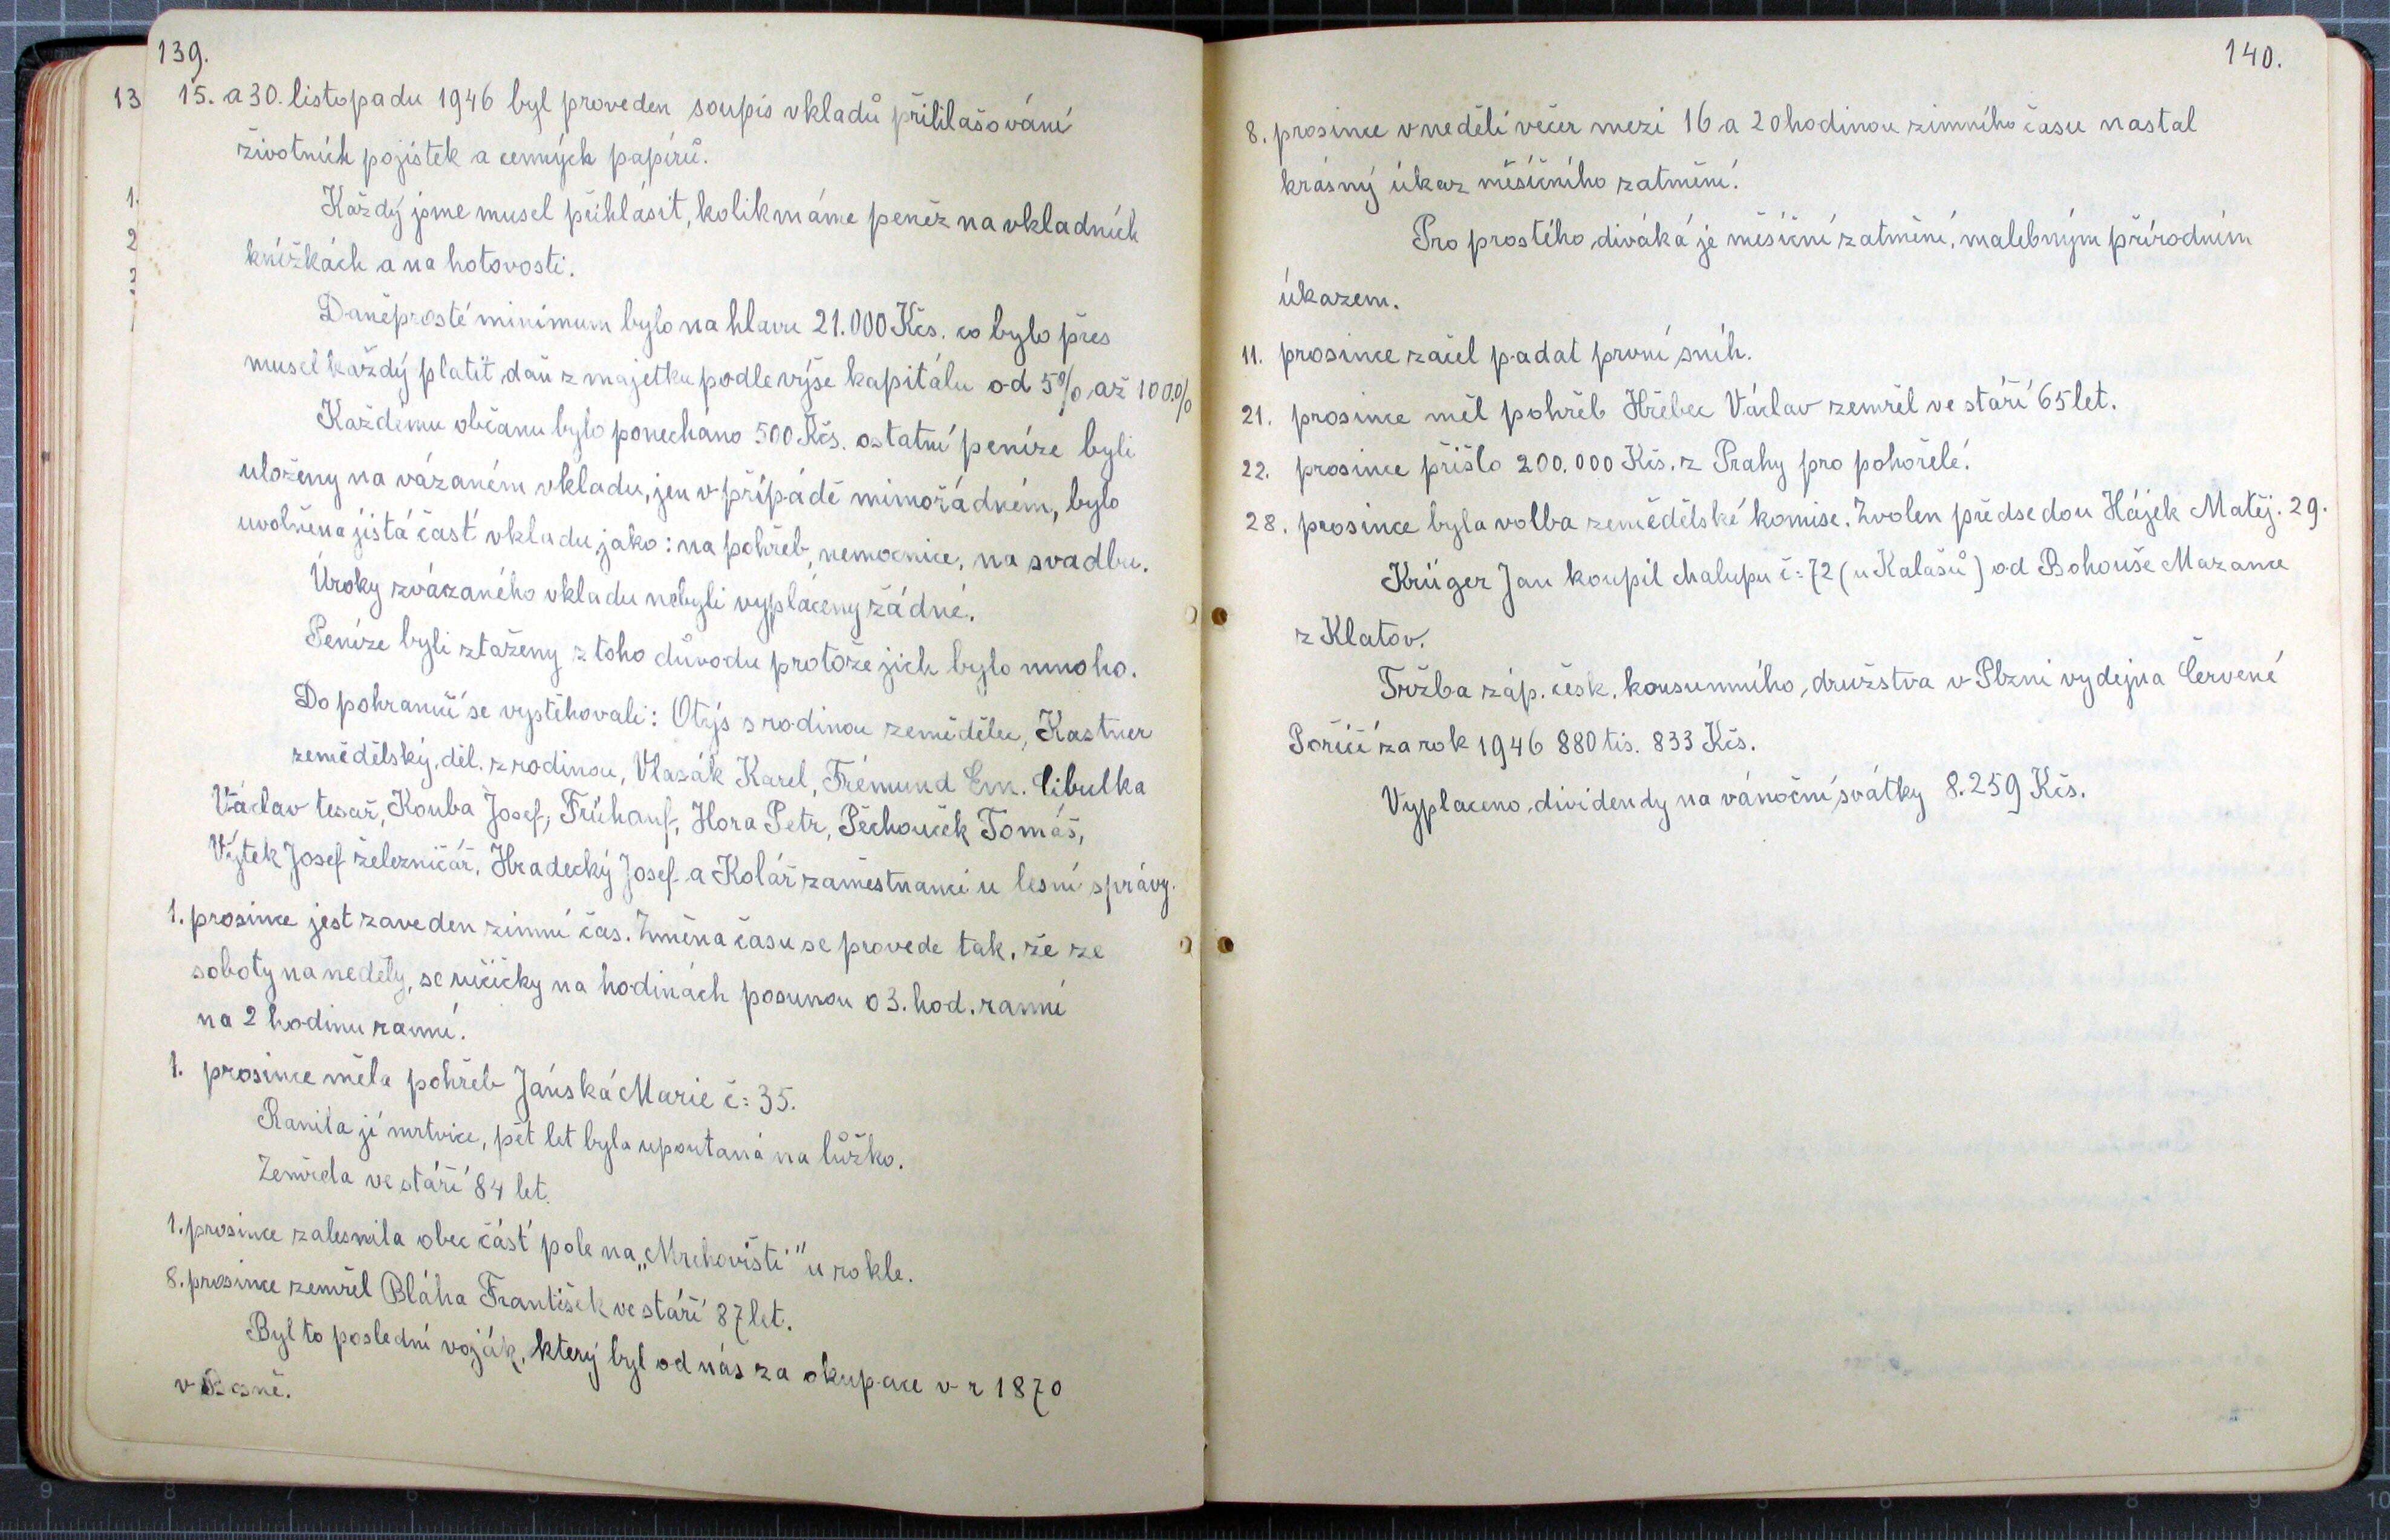 139.
15. a 30. listopadu 1946 byl proveden soupis vkladů přihlašování
životních pojistek a cenných papírů.
Každý jsme musel přihlásit, kolik máme peněz na vkladních
knížkách a na hotovosti.
Daněprosté minimum bylo na hlavu 21.000 Kčs. co bylo přes
musel každý platit daň z majetku podle výše kapitálu od 5% až 100%
Každému občanu bylo ponecháno 500 Kčs. ostatní peníze byli
uloženy na vázaném vkladu, jen v případě mimořádném, bylo
uvolněna jistá časť vkladu, jako: na pohřeb, nemocnice, na svadbu.
Úroky zvázaného vkladu nebyli vypláceny žádné.
Peníze byli ztaženy z toho důvodu protože jich bylo mnoho.
Do pohraničí se vystěhovali: Otýs s rodinou zemědělec, Kastner
zemědělský, děl. z rodinou, Vlasák Karel, Frémund Em. Cibulka
Václav tesař, Kouba Josef, Frühauf, Hora Petr, Pěchouček Tomáš,
Výtek Josef železničář, Hradecký Josef a Kolář zaměstnanci u lesní správy.
1. prosince jest zaveden zimní čas. Změna času se provede tak, že ze
soboty na neděly, se ručičky na hodinách posunou o 3. hod. ranní
na 2 hodinu ranní.
1. prosince měla pohřeb Jánská Marie č: 35.
Ranila jí mrtvice, pět let byla upoutaná na lůžko.
Zemřela ve stáří 84 let.
1. prosince zalesnila obec část pole na „Mrchovišti" u rokle.
8. prosince zemřel Bláha František ve stáří 87 let.
Byl to poslední voják, který byl od nás za okupace v r 1870
v Bosně.
13
1.
2
3
140.
8. prosince v neděli večer mezi 16 a 20 hodinou zimního času nastal
krásný úkaz měsíčního zatmění.
Pro prostého diváka je měsíční zatmění, malebným přírodním
úkazem.
11. prosince začel padat první sníh.
21. prosince měl pohřeb Hřebec Václav zemřel ve stáří 65 let.
22. prosince přišlo 200.000 Kčs. z Prahy pro pohořelé.
28. prosince byla volba zemědělské komise. Zvolen předsedou Hájek Matěj. 29.
Krüger Jan koupil chalupu č: 72 (u Kalašů) od Bohouše Mazance
z Klatov.
Tržba záp. česk. konsumního, družstva v Plzni vydejna Červené
Poříčí za rok 1946 880 tis. 833 Kčs.
Vyplaceno dividendy na vánoční svátky 8.259 Kčs.